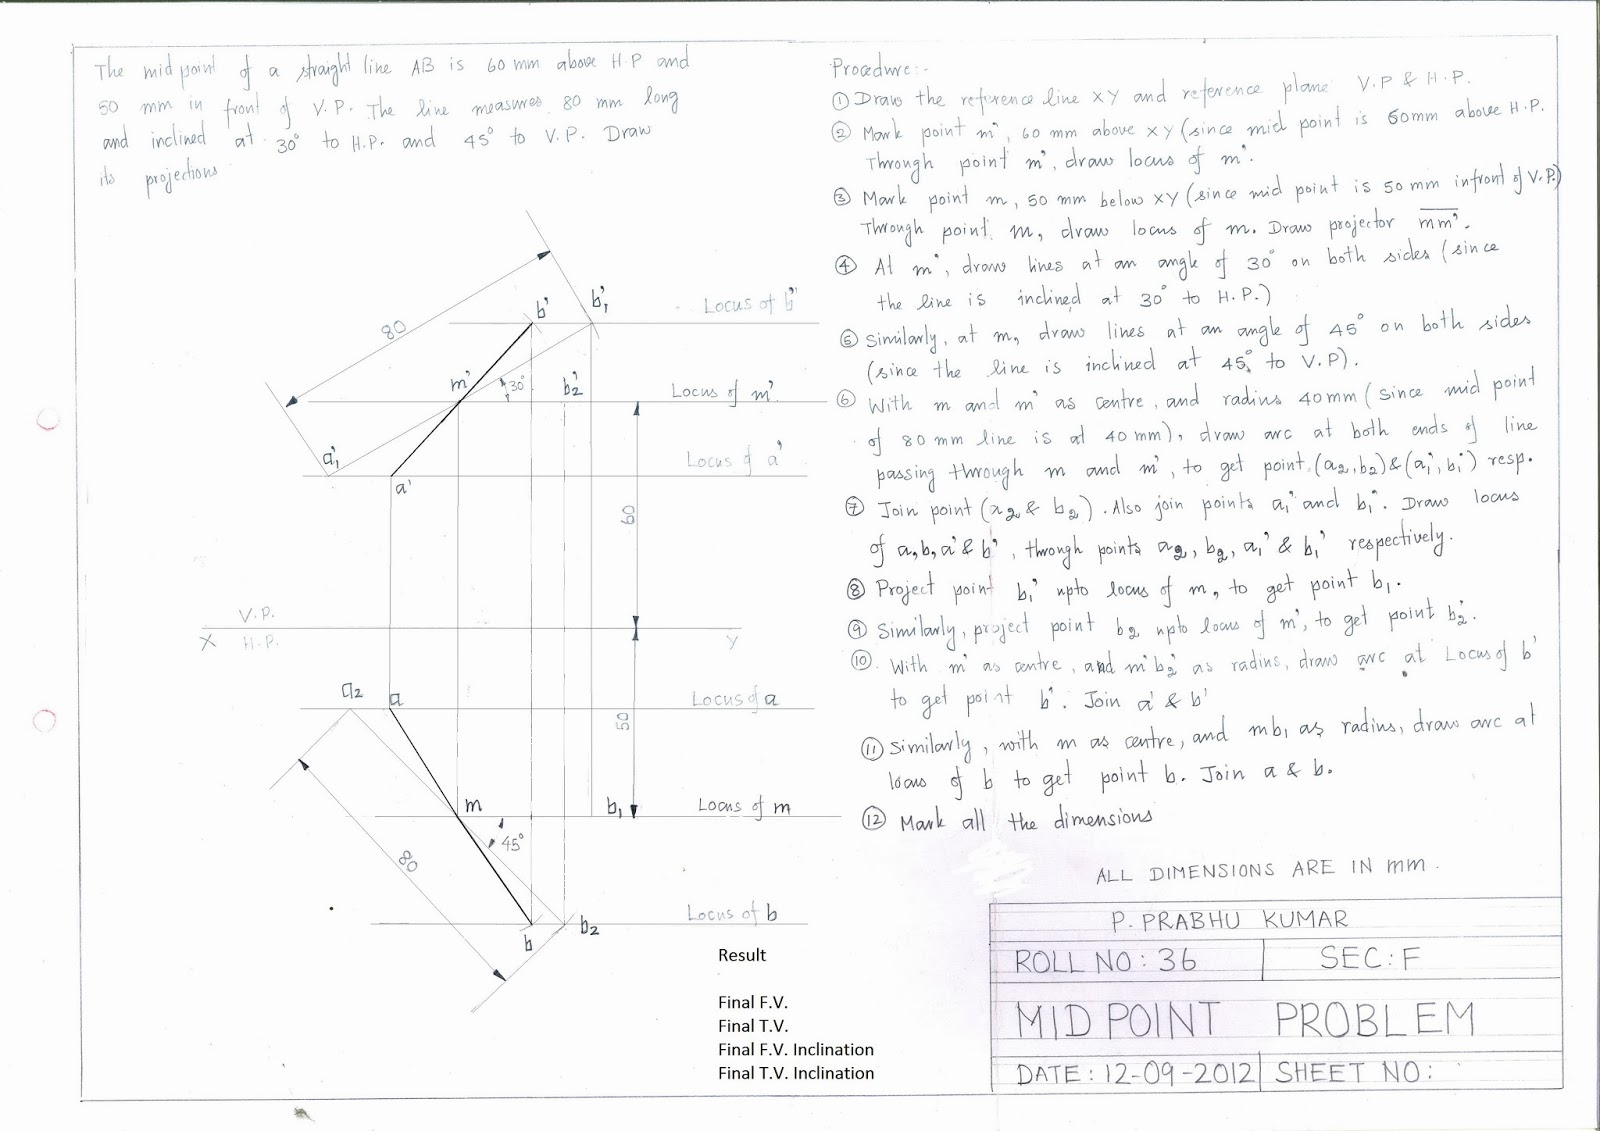 The mid point of a straight line AB is 60 mm above H.P and
50 mm in front of V.P. The line measures 80 mm long
and inclined at 30° to H.P. and 45° to V.P. Draw
its projections
Procedure:-
① Draw the reference line XY and reference plane V.P & H.P.
② Mark point m', 60 mm above xy (since mid point is 60mm above H.P.
Through point m', draw locus of m'.
③ Mark point m, 50 mm below XY (since mid point is 50 mm infront of V.P.)
Through point m, draw locus of m. Draw projector mm'.
④ At m', draw lines at an angle of 30° on both sides (since
the line is inclined at 30° to H.P.)
⑤ Similarly, at m, draw lines at an angle of 45° on both sides
(since the line is inclined at 45° to V.P).
⑥ With m and m' as centre, and radius 40mm (since mid point
of 80 mm line is at 40 mm), draw arc at both ends of line
passing through m and m', to get point (a2, b2) & (a1', b1') resp.
⑦ Join point (a2 & b2). Also join points a1' and b1'. Draw locus
of a, b, a' & b', through points a2, b2, a1' & b1' respectively.
⑧ Project point b1' upto locus of m, to get point b1.
⑨ Similarly, project point b2 upto locus of m', to get point b2'.
⑩. With m' as centre, and m'b2' as radius, draw arc at Locus of b'
to get point b'. Join a' & b'
⑪ Similarly, with m as centre, and mb1 as radius, draw arc at
locus of b to get point b. Join a & b.
⑫ Mark all the dimensions
80
b'
b1'
Locus of b'
m'
30°
b2'
Locus of m'
a1'
a'
Locus of a'
60
V.P.
X
H.P.
Y
a2
a
Locus of a
50
m
b1
Locus of m
45°
80
b
b2
Locus of b
Result
Final F.V.
Final T.V.
Final F.V. Inclination
Final T.V. Inclination
ALL DIMENSIONS ARE IN mm.
P. PRABHU KUMAR
ROLL NO: 36
SEC: F
MID POINT PROBLEM
DATE: 12-09-2012
SHEET NO: